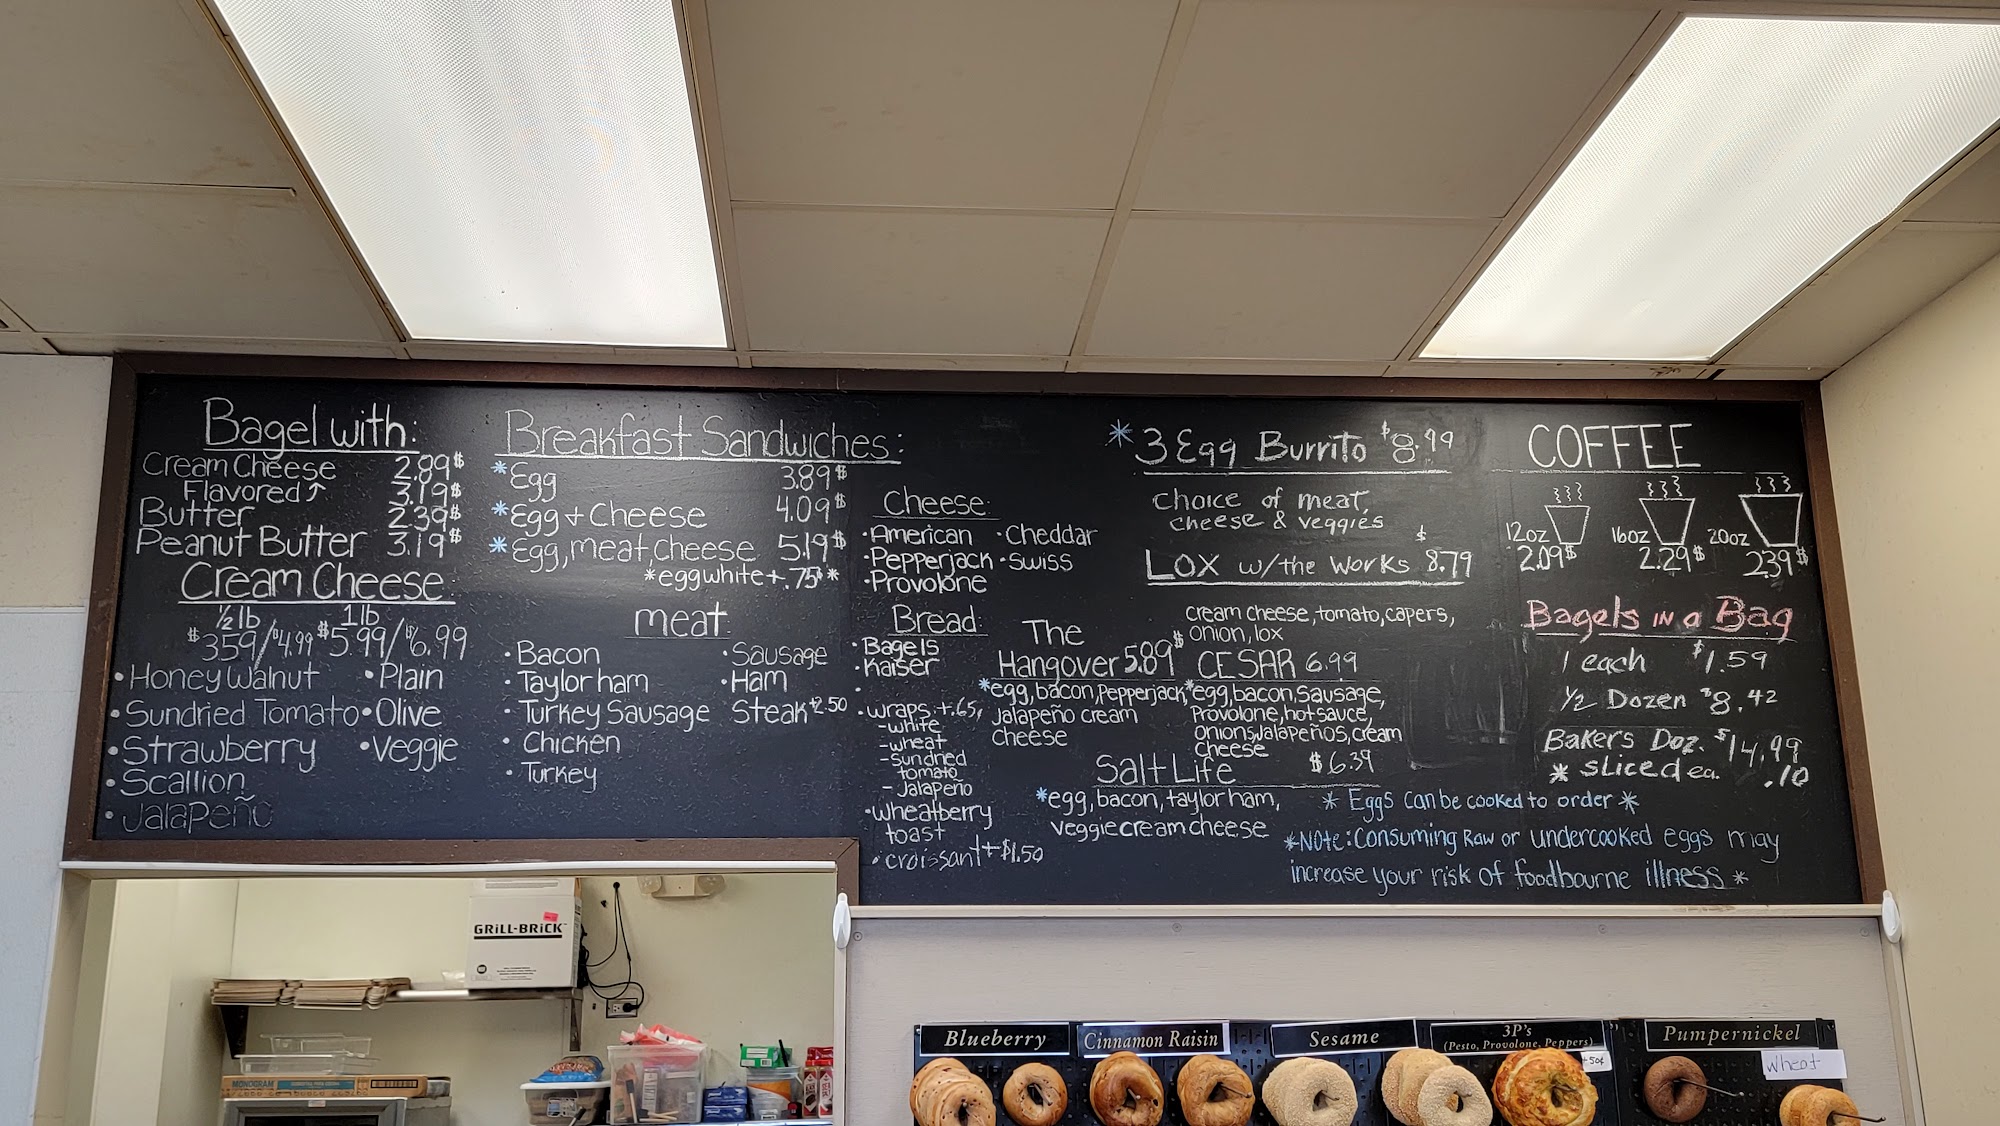 Bagel with:
Cream Cheese 2.89$
Flavored↑ 3.19$
Butter 2.39$
Peanut Butter 3.19$
Cream Cheese:
½lb 1lb
$3.59/$4.99 $5.99/$6.99
•Honey Walnut •Plain
•Sundried Tomato •Olive
•Strawberry •Veggie
•Scallion
•Jalapeño
Breakfast Sandwiches:
*Egg 3.89$
*Egg + Cheese 4.09$
*Egg, meat, cheese 5.19$
*egg white +.75$*
meat:
•Bacon •Sausage
•Taylor ham •Ham
•Turkey Sausage Steak+2.50
•Chicken
•Turkey
Cheese:
•American •Cheddar
•Pepperjack •Swiss
•Provolone
Bread:
•Bagels
•Kaiser
•wraps +.65¢
-white
-wheat
-sundried
tomato
-Jalapeño
•wheatberry
toast
•croissant +$1.50
The
Hangover 5.89$
*egg, bacon, Pepperjack,
Jalapeño cream
cheese
*3 Egg Burrito $8.99
choice of meat,
cheese & veggies
LOX w/the Works $8.79
cream cheese, tomato, capers,
onion, lox
CESAR 6.99
*egg, bacon, Sausage,
Provolone, hot sauce,
onions, Jalapeños, cream
cheese
Salt Life $6.39
*egg, bacon, taylor ham,
veggie cream cheese
COFFEE
12oz 16oz 20oz
2.09$ 2.29$ 2.39$
Bagels in a Bag
1 each $1.59
½ Dozen $8.42
Bakers Doz. $14.99
* sliced ea. .10
* Eggs can be cooked to order *
*Note: Consuming Raw or undercooked eggs may
increase your risk of foodbourne illness *
GRILL-BRICK
MONOGRAM
Blueberry
Cinnamon Raisin
Sesame
3P's
(Pesto, Provolone, Peppers)
+50¢
Pumpernickel
wheat